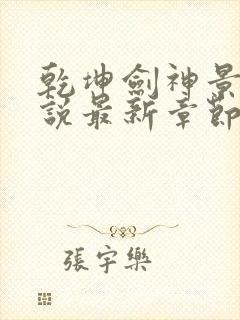 乾坤劍神景
說最新章節
張宇樂